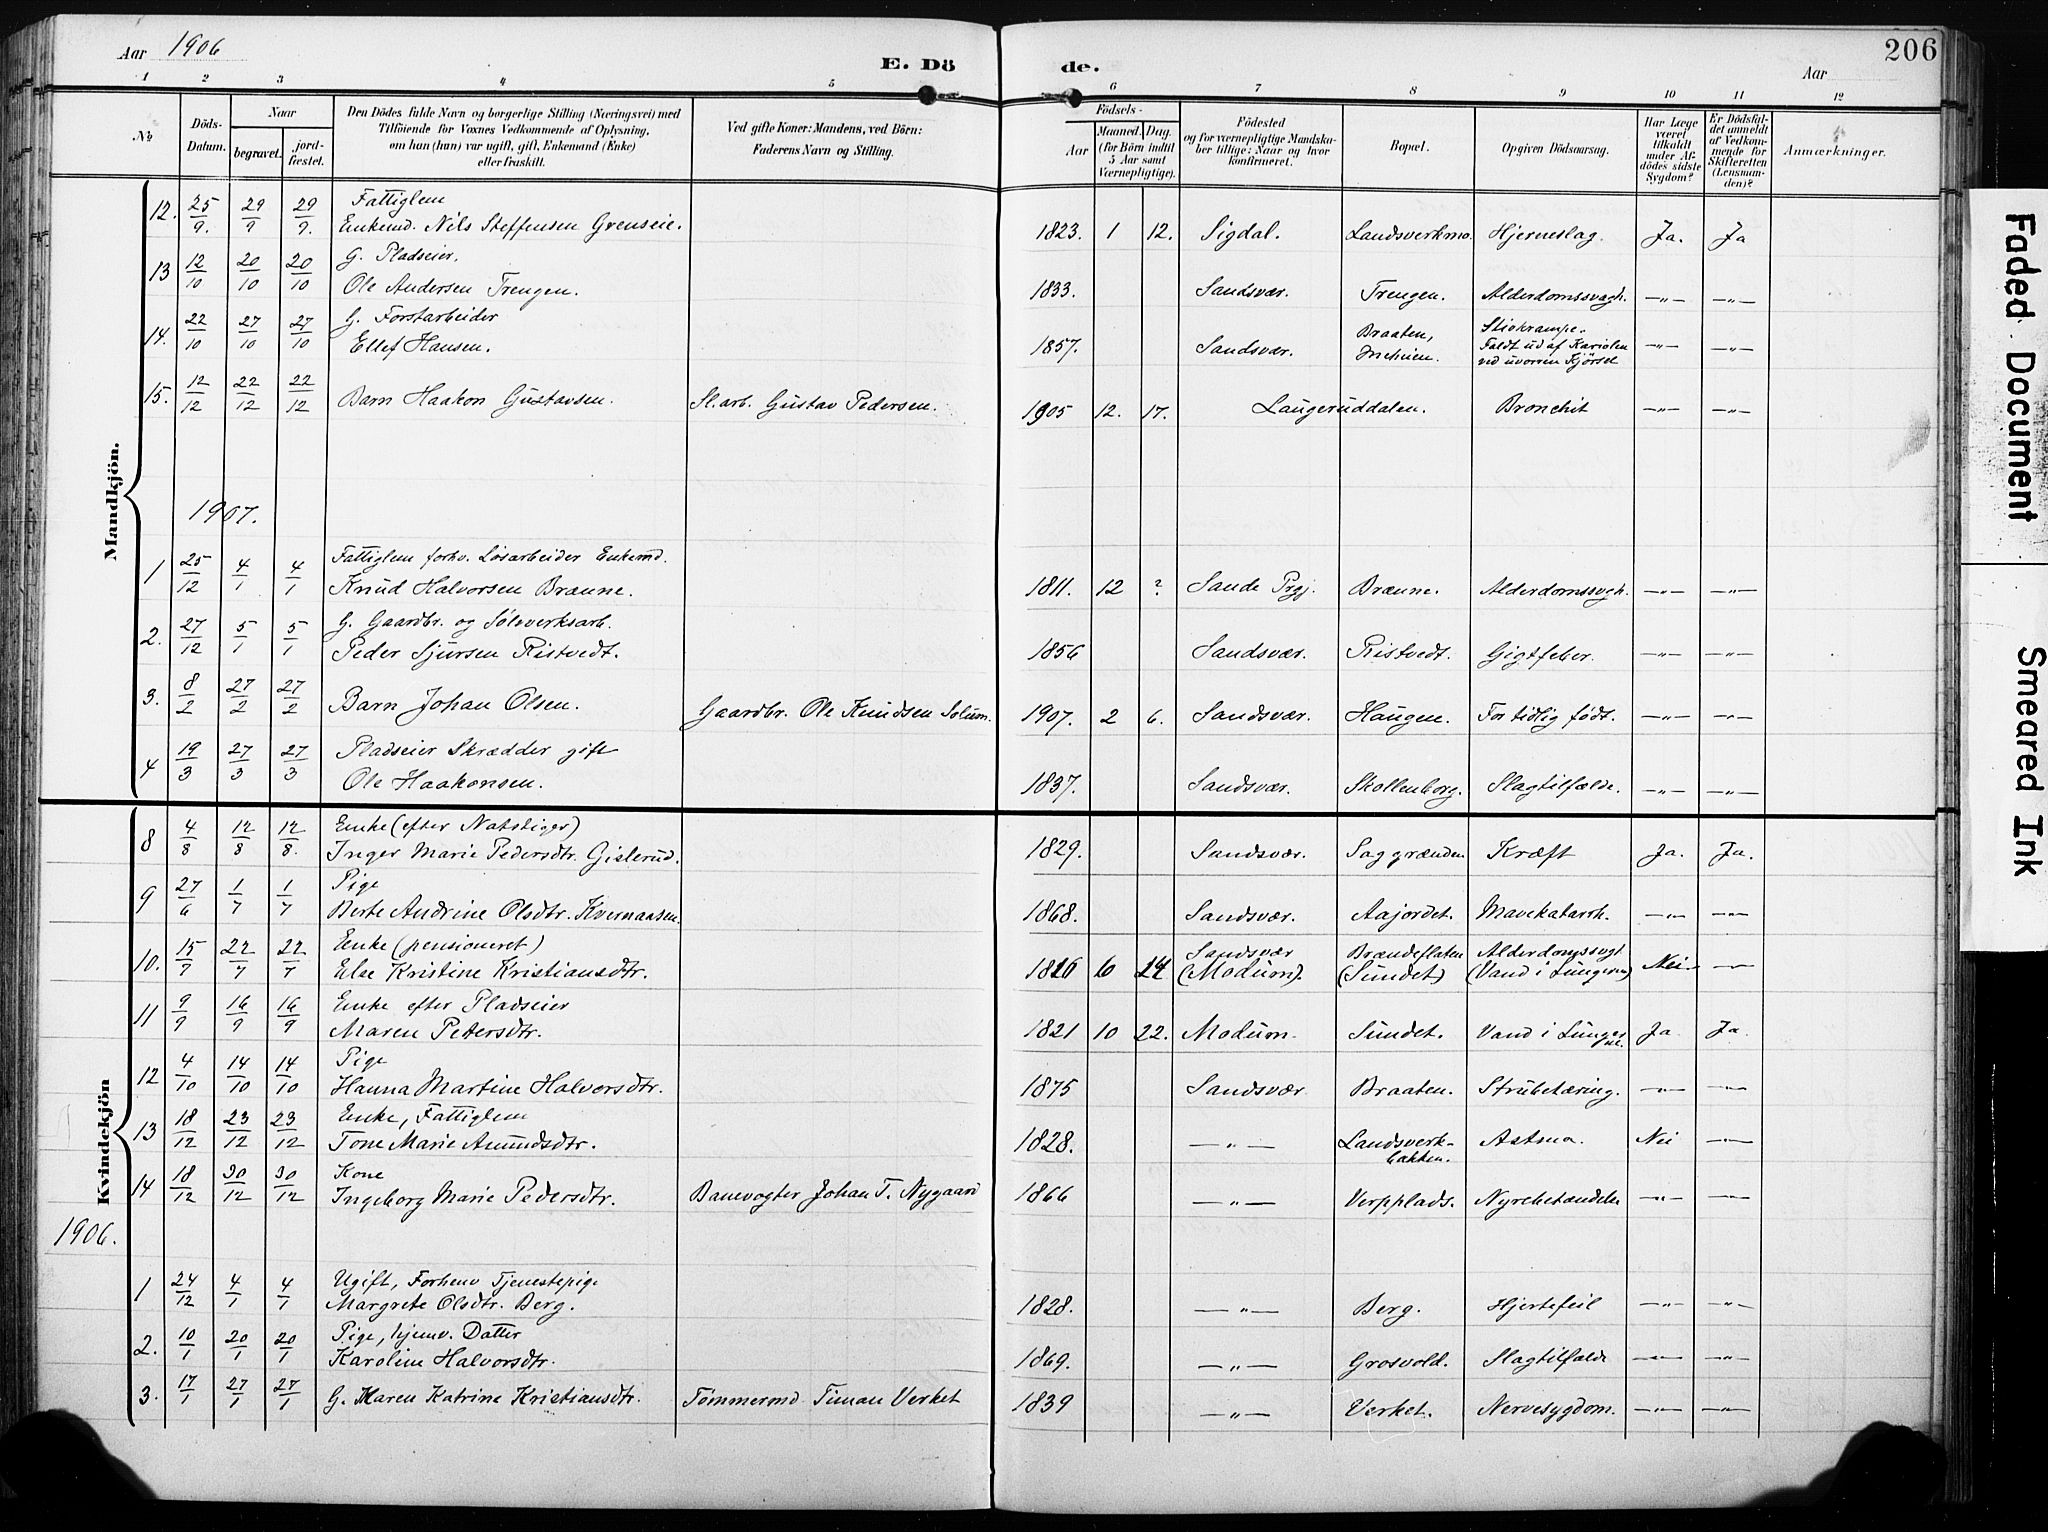 Aar 1906
E. Dö
de.
Aar
206
1 2 3 4 5 6 7 8 9 10 11 12
No. Döds-Datum. Naar begravet. jordfæstet. Den Dödes fulde Navn og borgerlige Stilling (Næringsvei) med Tilföiende for Voxnes Vedkommende af Oplysning, om han (hun) var ugift, gift, Enkemand (Enke) eller fraskilt. Ved gifte Koner: Mandens, ved Börn: Faderens Navn og Stilling. Födsels- Aar Maaned. Dag. (for Börn indtil 5 Aar samt Værnepligtige). Födested og for værnepligtige Mandskaber tillige: Naar og hvor konfirmeret. Bopæl. Opgiven Dödsaarsag. Har Læge været tilkaldt under Afdödes sidste Sygdom? Er Dödsfaldet anmeldt af Vedkommende for Skifteretten (Lensmanden)? Anmærkninger.
Mandkjön.
12. 25/9. 29/9 29/9. Fattiglem
Enkemd. Nils Steffensen Grenseie. 1823. 1 12. Sigdal. Landsverkmo. Hjerneslag. Ja. Ja
13 12/10 20/10 20/10 G. Pladseier.
Ole Andersen Trengen. 1833. Sandsvær. Trengen. Alderdomssvagh. —"— —"—
14. 22/10 27/10 27/10 G. Forstarbeider
Ellef Hansen. 1857. Sandsvær. Braaten, Stivkrampe. Faldt ud af Kariolen ved uvorren Kjørsel —"— —"—
15. 12/12 22/12 22/12 Barn Haakon Gustavsen. Sl.arb. Gustav Pedersen. 1905 12. 17. Laugeruddalen. Bronchit —"— —"—
1907.
1 25/12 4/1 4/1 Fattiglem forhv. Løsarbeider Enkemd.
Knud Halvorsen Brænne. 1811. 12 ? Sande Prgj. Brænne. Alderdomssvgh. —"— —"—
2. 27/12 5/1 5/1 G. Gaardbr. og Sølvverksarb.
Peder Sjursen Ristvedt. 1856 Sandsvær. Ristvedt. Gigtfeber. —"— —"—
3. 8/2 27/2 27/2 Barn Johan Olsen. Gaardbr. Ole Knudsen Solum. 1907. 2 6. Sandsvær. Haugen. For tidlig født. —"— —"—
4 19/3 27/3 27/3 Pladseier Skrædder gift
Ole Haakonsen. 1837. Sandsvær. Skollenborg. Slagtilfælde. —"— —"—
Kvindekjön
8 4/8 12/8 12/8. Enke (efter Natstiger)
Inger Marie Pedersdtr. Gislerud. 1829. Sandsvær. Saggrænden Kræft Ja. Ja.
9 27/6 1/7 1/7 Pige
Berte Andrine Olsdtr. Kvernaasen. 1868. Sandsvær. Aajordet. Mavekatarrh. —"— —"—
10. 15/7 22/7 22/7 Enke (pensioneret)
Else Kristine Kristiansdtr. 1826 6 24 Sandsvær (Modum). Brændeflaten (Sundet) Alderdomssvgt (Vand i Lungerne) Nei —
11 9/9 16/9 16/9 Enke efter Pladseier
Maren Petersdtr. 1821 10 22. Modum. Sundet. Vand i Lungerne. Ja Ja.
12 4/10 14/10 14/10 Pige
Hanna Martine Halvorsdtr. 1875 Sandsvær Braaten. Strubetæring. —"— —"—
13 18/12 23/12 23/12 Enke, Fattiglem
Tone Marie Amundsdtr. 1828. —"— Landsverkbakken. Astma. Nei —"—
14 18/12 30/12 30/12 Kone
Ingeborg Marie Pedersdtr. Banevogter Johan T. Nygaard 1866 —"— Verpplads. Nyrebetændelse —"— —"—
1906.
1 24/12 4/1 4/1 Ugift, Forhenv Tjenestepige
Margrete Olsdtr. Berg. 1828. —"— Berg. Hjertefeil —"— —"—
2. 10/1 20/1 20/1 Pige, hjemv. Datter
Karoline Halvorsdtr. 1869. —"— Grosvold. Slagtilfælde —"— —"—
3. 17/1 27/1 27/1 G. Maren Katrine Kristiansdtr. Tømmermd. Timan Verket 1839 —"— Verket. Nervesygdom. —"— —"—
Faded Document
Smeared Ink